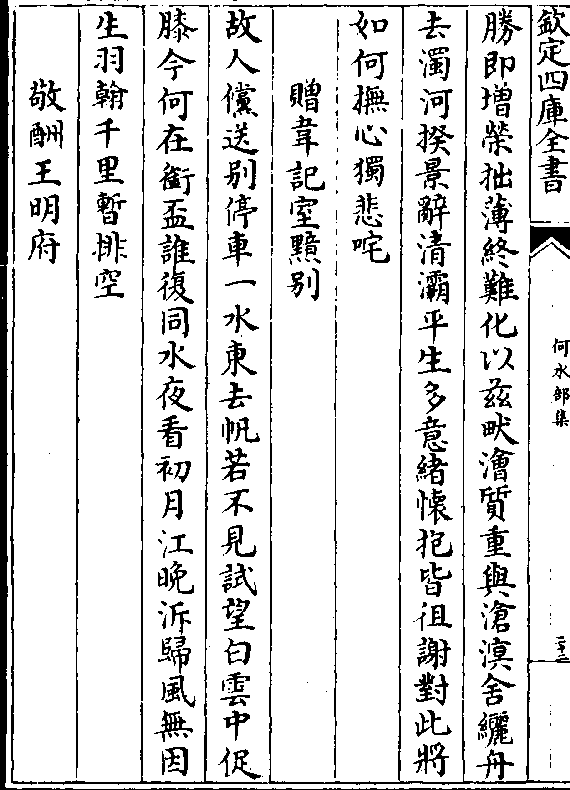 欽定四庫全書
何水部集
二十二
勝即增榮拙薄終難化以茲畎澮質重與滄溟舍纚舟
去濁河揆景辭清灞平生多意緒懷抱皆徂謝對此將
如何撫心獨悲咤
贈韋記室黯别
故人儻送别停車一水東去帆若不見試望白雲中促
膝今何在銜盃誰復同水夜看初月江晚泝歸風無因
生羽翰千里暫排空
敬酬王明府